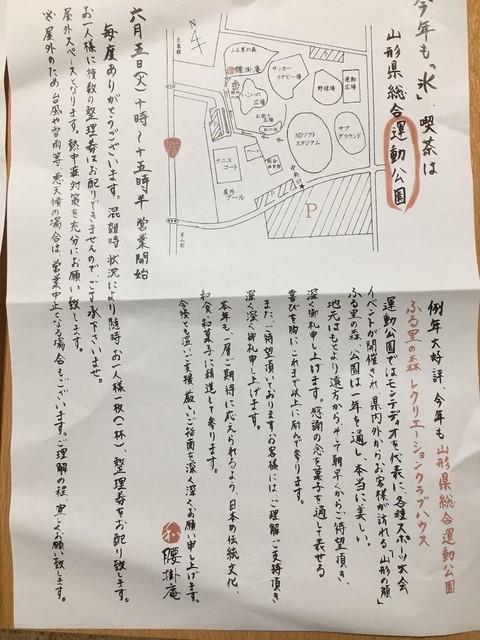 今年も「氷」喫茶は
山形県総合運動公園
例年大好評、今年も山形県総合運動公園
ふる里の森 レクリエーションクラブハウス
運動公園ではモンテディオを代表に、各種スポーツ大会
イベントが開催され、県内外からお客様が訪れる「山形の顔」
ふる里の森、公園は一年を通し、本当に美しい。
地元はもとより遠方から、そして朝早くからご待望頂き、
深く御礼申し上げます。感謝の念を菓子を通して表せる
喜びを胸に、これまで以上に励んで参ります。
また、ご待望頂いておりますお客様には、ご理解ご支持頂き
深く深く御礼申し上げます。
本年も、一層ご期待に応えられるよう、日本の伝統文化、
和食、和菓子に精進して参ります。
今後とも温いご支援、厳しいご指南を深く深くお願い申し上げます。
腰掛庵
N
ふる里の森
腰掛庵
サッカー
ラグビー場
野球場
運動
広場
いこいの
広場
NDソフト
スタジアム
サブ
グラウンド
テニス
コート
総合
体育館
屋外
プール
中央口
P
至東根
至山形
六月五日(火)十時〜十五時半 営業開始
毎度ありがとうございます。混雑時、状況により随時、お一人様一枚(一杯)整理券をお配り致します。
お一人様に複数の整理券はお配りできませんので、ご了承下さいませ。
屋外スペースとなります。熱中症対策を充分にお願い致します。
※屋外のため、台風や雷雨等、悪天候の場合は、営業中止となる場合もございます。ご理解の程、宜しくお願い致します。